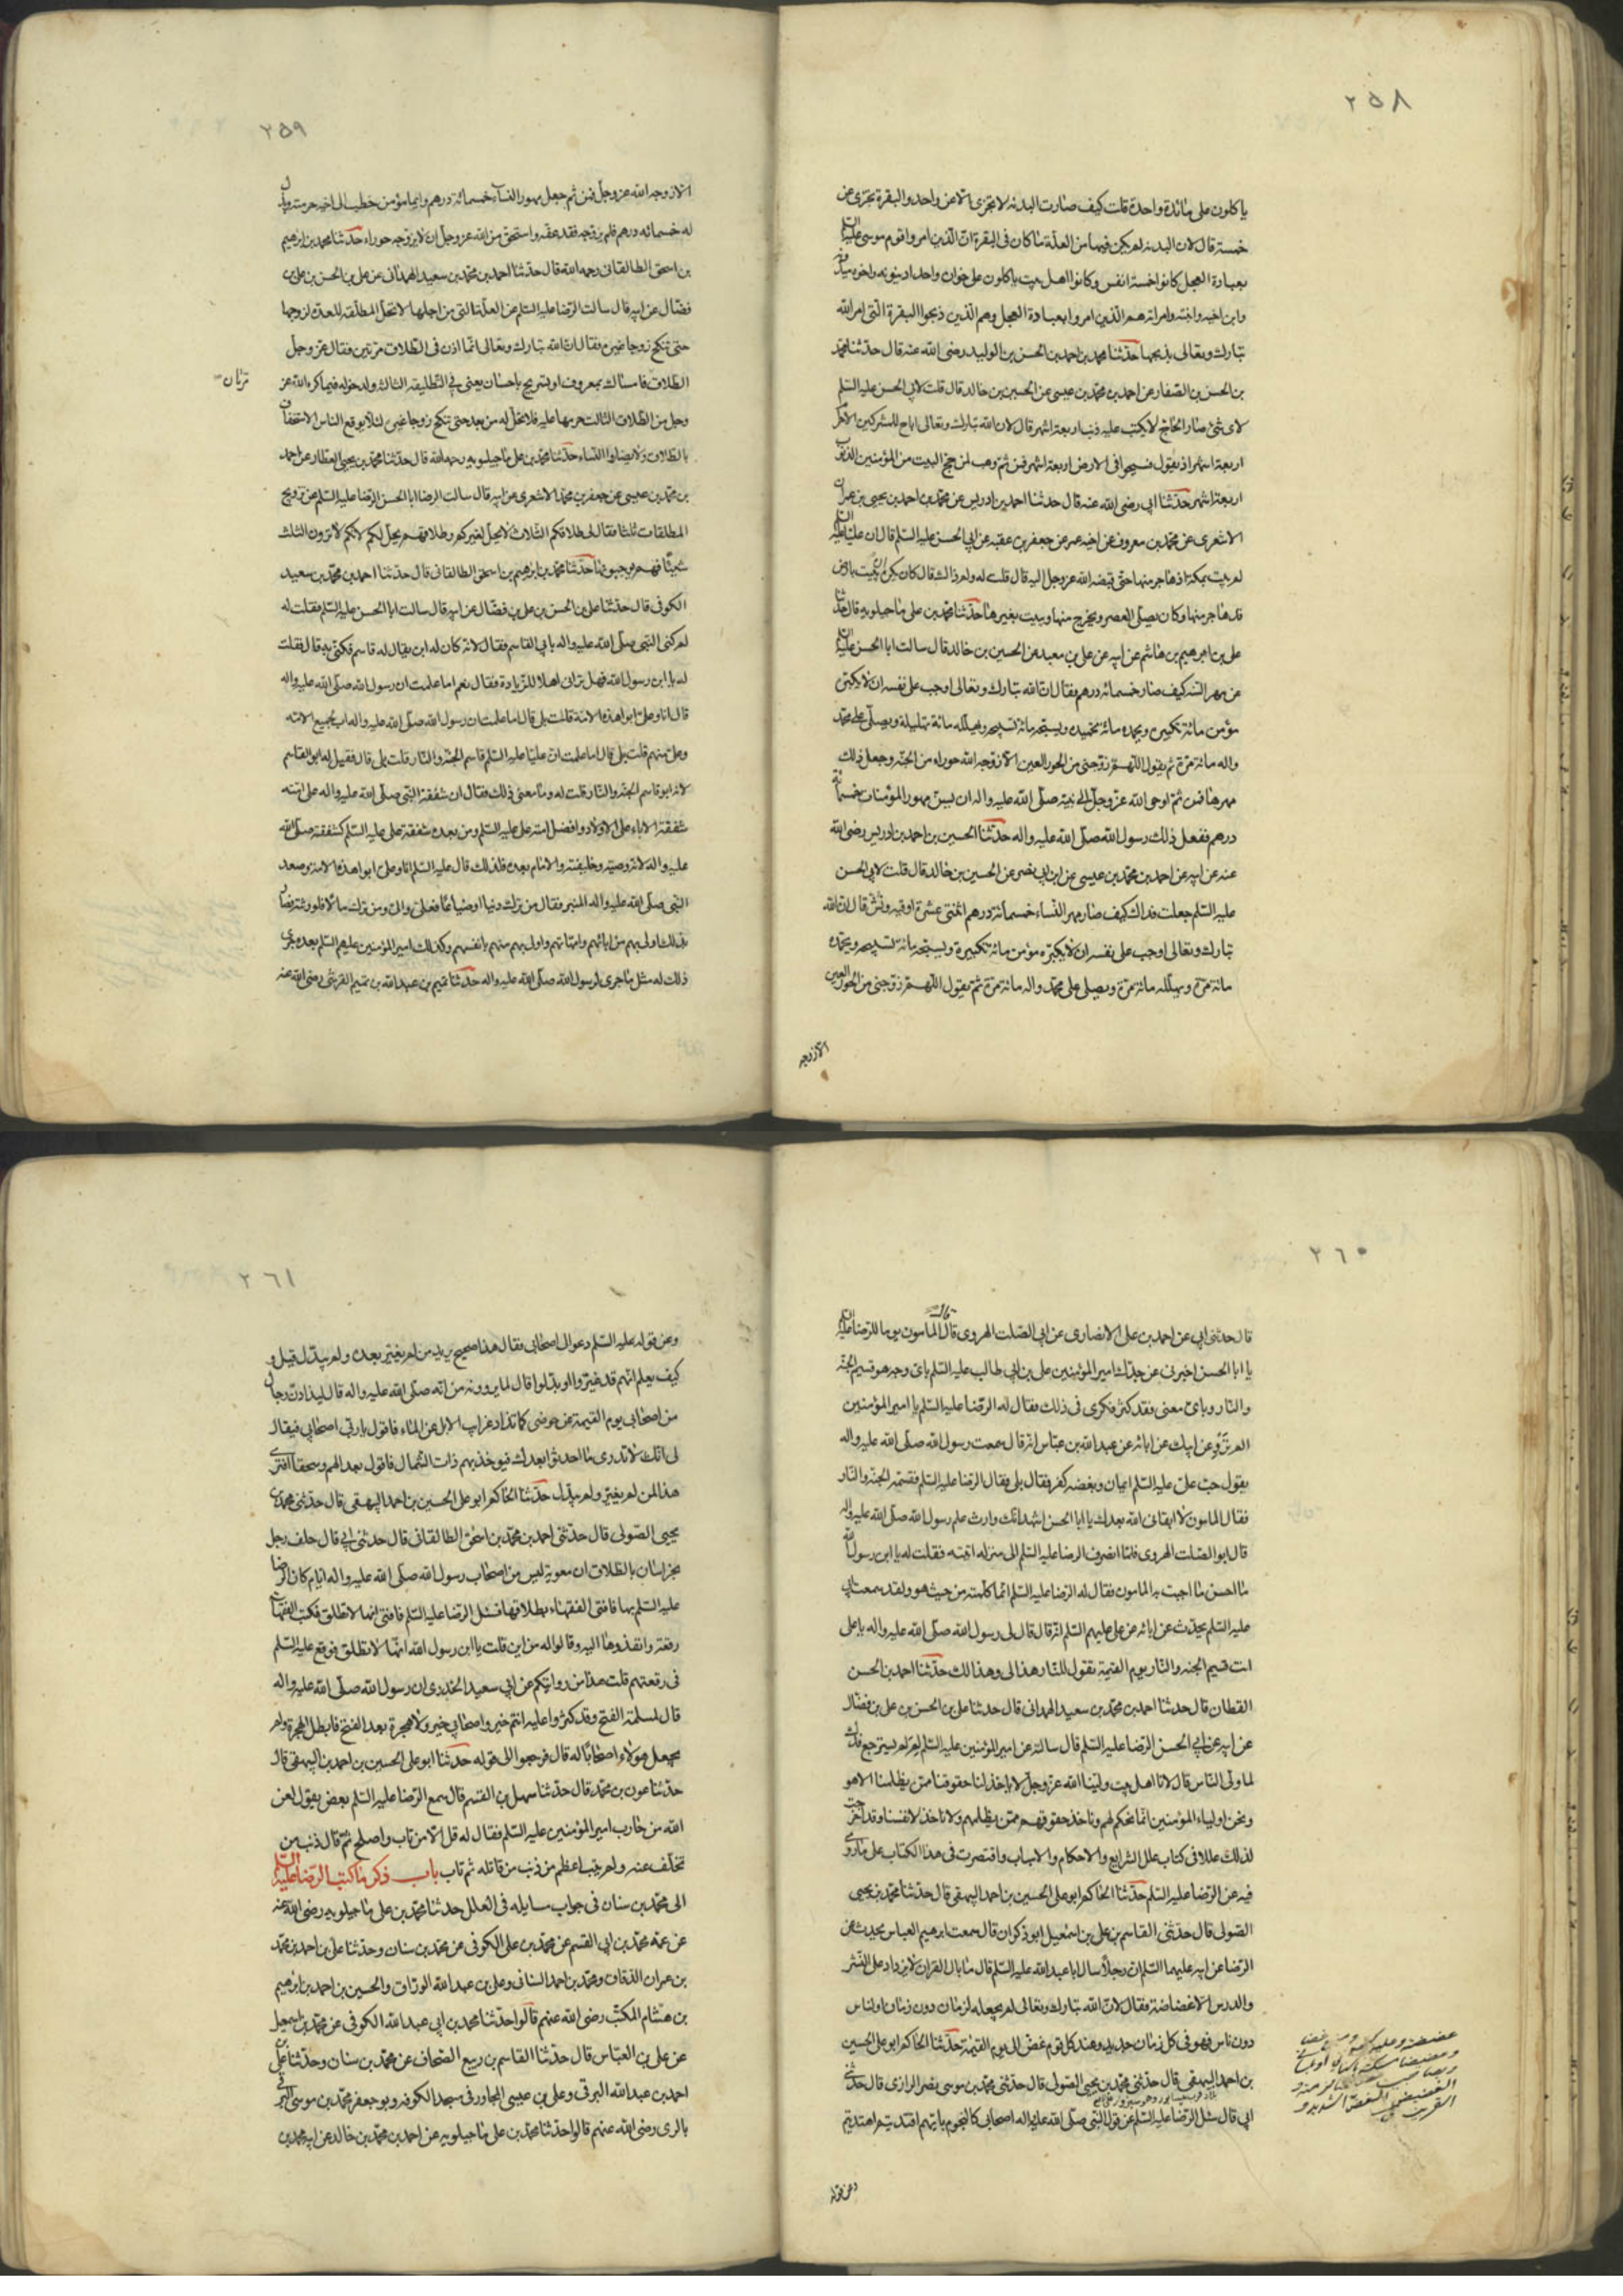 ٢٥٨
ياكلون على مائدة واحدة قلت كيف صارت البدنه لا تجزى الا عن واحد والبقرة تجزى عن
خمسة قال لان البدنه لم يكن فيها من العلة ما كان فى البقرة ان الذين امروا قوم موسى عليه السلم
بعبادة العجل كانوا خمسة انفس وكانوا اهل بيت ياكلون على خوان واحد
وابن اخيه وابنته وامراته هم الذين امروا بعبادة العجل وهم الذين ذبحوا البقرة التى امر الله
تبارك وتعالى بذبحها حدثنا محمد بن احمد بن الحسن بن الوليد رضى الله عنه قال حدثنا محمد
بن الحسن بن الصفار عن احمد بن محمد بن عيسى عن الحسين بن خالد قال قلت لابى الحسن عليه السلم
لاى شئ صار الحاج لا يكتب عليه ذنب اربعة اشهر قال لان الله تبارك وتعالى اباح للمشركين
اربعة اشهر اذ يقول فسيحوا فى الارض اربعة اشهر فمن ثم وهب لمن حج البيت من المؤمنين الذنوب
اربعة اشهر حدثنا ابى رضى الله عنه قال حدثنا احمد بن ادريس عن محمد بن احمد بن يحيى بن عمران
الاشعرى عن محمد بن معروف عن اخيه عمر عن جعفر بن عقبه عن ابى الحسن عليه السلم قال ان عليا عليه السلم
لم يبت بمكة اذ هاجر منها حتى قبضه الله عز وجل اليه قال قلت له ولم ذاك قال كان يكره ان يبيت بارض
قد هاجر منها وكان يصلى العصر ويخرج منها ويبيت بغيرها حدثنا محمد بن على ماجيلويه قال حدثنا
على بن ابرهيم بن هاشم عن ابيه عن على بن معبد عن الحسين بن خالد قال سالت ابا الحسن عليه السلم
عن مهر السنه كيف صار خمسمائه درهم فقال ان الله تبارك وتعالى اوجب على نفسه ان لا يكبره
مؤمن مائة تكبيره ويحمده مائة تحميده ويسبحه مائة تسبيحه ويهلله مائة تهليلة ويصلى على محمد
واله مائة مرة ثم يقول اللهم زوجنى من الحور العين الا زوجه الله حوراء من الجنه وجعل ذلك
مهرها فمن ثم اوحى الله عز وجل الى نبيه صلى الله عليه واله ان يسن مهور المؤمنات خمسمائة
درهم ففعل ذلك رسول الله صلى الله عليه واله حدثنا الحسين بن احمد بن ادريس رضى الله
عنه عن ابيه عن احمد بن محمد بن عيسى عن ابن ابى نصر عن الحسين بن خالد قال قلت لابى الحسن
عليه السلم جعلت فداك كيف صار مهر النساء خمسمائة درهم اثنتى عشرة اوقيه ونش قال ان الله
تبارك وتعالى اوجب على نفسه ان لا يكبره مؤمن مائة تكبيرة ويسبحه مائة تسبيحه ويحمده
مائة مرة ويهلله مائة مرة ويصلى على محمد واله مائة مرة ثم يقول اللهم زوجنى من الحور العين
الا زوجه
٢٥٩
الا زوجه الله عز وجل فمن ثم جعل مهور النساء خمسمائة درهم وايما مؤمن خطب الى اخيه حرمته وبذل
له خمسمائه درهم فلم يزوجه فقد عقه واستحق من الله عز وجل ان لا يزوجه حوراء حدثنا محمد بن ابرهيم
بن اسحق الطالقانى رحمه الله قال حدثنا احمد بن محمد بن سعيد الهمدانى عن على بن الحسن بن على بن
فضال عن ابيه قال سالت الرضا عليه السلم عن العلة التى من اجلها لا تحل المطلقه للعدة لزوجها
حتى تنكح زوجا غيره فقال ان الله تبارك وتعالى انما اذن فى الطلاق مرتين فقال عز وجل
الطلاق فامساك بمعروف او تسريح باحسان يعنى فى التطليقه الثالثه ولدخوله فيما كره الله عز
مرتان
وجل من الطلاق الثالث حرمها عليه فلا تحل له من بعد حتى تنكح زوجا غيره لئلا يوقع الناس الاستخفاف
بالطلاق ولا يضاروا النساء حدثنا محمد بن على ماجيلويه رحمه الله قال حدثنا محمد بن يحيى العطار عن احمد
بن محمد بن عيسى عن جعفر بن محمد الاشعرى عن ابيه قال سالت الرضا ابا الحسن الرضا عليه السلم عن تزويج
المطلقات ثلثا فقال لى طلاقكم الثلاث لا يحل لغيركم وطلاقهم يحل لكم لانكم لا ترون الثلث
شيئا وهم يوجبونها حدثنا محمد بن ابرهيم بن اسحق الطالقانى قال حدثنا احمد بن محمد بن سعيد
الكوفى قال حدثنا على بن الحسن بن على بن فضال عن ابيه قال سالت ابا الحسن عليه السلم فقلت له
لم كنى النبى صلى الله عليه واله بابى القاسم فقال لانه كان له ابن يقال له قاسم فكنى به قال فقلت
له يا ابن رسول الله فهل ترانى اهلا للزيادة فقال نعم اما علمت ان رسول الله صلى الله عليه واله
قال انا وعلى ابوا هذه الامة قلت بلى قال اما علمت ان رسول الله صلى الله عليه واله اب لجميع الامته
وعلى منهم قلت بلى قال اما علمت ان عليا عليه السلم قاسم الجنه والنار قلت بلى قال فقيل له ابو القاسم
لانه ابو قاسم الجنه والنار قلت له وما معنى ذلك فقال ان شفقة النبى صلى الله عليه واله على امته
شفقة الاباء على الاولاد وافضل امته على عليه السلم ومن بعده شفقة على عليه السلم كشفقته صلى الله
عليه واله لانه وصيه وخليفته والامام بعده فلذلك قال عليه السلم انا وعلى ابوا هذه الامه وصعد
النبى صلى الله عليه واله المنبر فقال من ترك دينا او ضياعا فعلى والى ومن ترك مالا فلورثته فصار
بذلك اولى بهم من ابائهم وامهاتهم واولى بهم منهم بانفسهم وكذلك امير المؤمنين عليه السلم بعده جرى
ذلك له مثل ما جرى لرسول الله صلى الله عليه واله حدثنا تميم بن عبد الله بن تميم القرشى رضى الله عنه
٢٦٠
قال حدثنى ابى عن احمد بن على الانصارى عن ابى الصلت الهروى قال قال المامون يوما للرضا عليه السلم
يا ابا الحسن اخبرنى عن جدك امير المؤمنين على بن ابى طالب عليه السلم باى وجه هو قسيم الجنه
والنار وباى معنى فقد كثر فكرى فى ذلك فقال له الرضا عليه السلم يا امير المؤمنين
الم ترو عن ابيك عن ابائه عن عبد الله بن عباس انه قال سمعت رسول الله صلى الله عليه واله
يقول حب على عليه السلم ايمان وبغضه كفر فقال بلى فقال الرضا عليه السلم فقسمة الجنه والنار
فقال المامون لا ابقانى الله بعدك يا ابا الحسن اشهد انك وارث علم رسول الله صلى الله عليه واله
قال ابو الصلت الهروى فلما انصرف الرضا عليه السلم الى منزله اتيته فقلت له يا ابن رسول الله
ما احسن ما اجبت به المامون فقال له الرضا عليه السلم انما كلمته من حيث هو ولقد سمعت ابى
عليه السلم يحدث عن ابائه عن على عليهم السلم انه قال قال لى رسول الله صلى الله عليه واله يا على
انت قسيم الجنه والنار يوم القيمة تقول للنار هذا لى وهذا لك حدثنا احمد بن الحسن
القطان قال حدثنا احمد بن محمد بن سعيد الهمدانى قال حدثنا على بن الحسن بن على بن فضال
عن ابيه عن ابى الحسن الرضا عليه السلم قال سالته عن امير المؤمنين عليه السلم لم لم يسترجع فدك
لما ولى الناس قال لانا اهل بيت ولينا الله عز وجل لا ياخذ لنا حقوقنا ممن يظلمنا الا هو
ونحن اولياء المؤمنين انما نحكم لهم وناخذ حقوقهم ممن يظلمهم ولا ناخذ لانفسنا وقد اخرجت
لذلك عللا فى كتاب علل الشرايع والاحكام والاسباب واقتصرت فى هذا الكتاب على ما روى
فيه عن الرضا عليه السلم حدثنا الحاكم ابو على الحسين بن احمد البيهقى قال حدثنا محمد بن يحيى
الصولى قال حدثنى القاسم بن على بن اسمعيل ابو ذكوان قال سمعت ابرهيم العباس يحدث عن
الرضا عن ابيه عليهما السلم ان رجلا سال ابا عبد الله عليه السلم قال ما بال القران لا يزداد على النشر
والدرس الا غضاضة فقال لان الله تبارك وتعالى لم يجعله لزمان دون زمان او لناس
دون ناس فهو فى كل زمان جديد وعند كل قوم غض الى يوم القيمة حدثنا الحاكم ابو على الحسين
بن احمد البيهقى قال حدثنى محمد بن يحيى الصولى قال حدثنى محمد بن موسى بن نصر الرازى قال حدثنى
ابى قال سئل الرضا عليه السلم عن قول النبى صلى الله عليه واله اصحابى كالنجوم بايهم اقتديتم اهتديتم
وعن قوله
٢٦١
وعن قوله عليه السلم دعوا لى اصحابى فقال هذا صحيح يريد من لم يغير بعده ولم يبدل قيل و
كيف يعلم انهم قد غيروا او بدلوا قال لما يروونه من انه صلى الله عليه واله قال ليذادن رجال
من اصحابى يوم القيمة عن حوضى كما تذاد غرايب الابل عن الماء فاقول يا رب اصحابى فيقال
لى انك لا تدرى ما احدثوا بعدك فيؤخذ بهم ذات الشمال فاقول بعدا لهم وسحقا افترى
هذا لمن لم يغير ولم يبدل حدثنا الحاكم ابو على الحسين بن احمد البيهقى قال حدثنى محمد بن
يحيى الصولى قال حدثنى احمد بن محمد بن اسحق الطالقانى قال حدثنى ابى قال حلف رجل
بخراسان بالطلاق ان معوية ليس من اصحاب رسول الله صلى الله عليه واله ايام كان الرضا
عليه السلم بها فافتى الفقهاء بطلاقها فسئل الرضا عليه السلم فافتى انها لا تطلق فكتب الفقهاء
رقعة وانفذوها اليه وقالوا له من اين قلت يا ابن رسول الله انها لا تطلق فوقع عليه السلم
فى رقعتهم قلت هذا من روايتكم عن ابى سعيد الخدرى ان رسول الله صلى الله عليه واله
قال لمسلمة الفتح وقد كثروا عليه انتم خير واصحابى خير ولا هجرة بعد الفتح فابطل الهجرة ولم
يجعل هولاء اصحابا له قال فرجعوا الى قوله حدثنا ابو على الحسين بن احمد بن البيهقى قال
حدثنا عون بن محمد قال حدثنا سهل بن القسم قال سمع الرضا عليه السلم بعض يقول لعن
الله من حارب امير المؤمنين عليه السلم فقال له قل الا من تاب واصلح ثم قال ذنب من
تخلف عنه ولم يتب اعظم من ذنب من قاتله ثم تاب باب ذكر ما كتب الرضا عليه السلم
الى محمد بن سنان فى جواب مسايله فى العلل حدثنا محمد بن على ماجيلويه رضى الله عنه
عن عمه محمد بن ابى القسم عن محمد بن على الكوفى عن محمد بن سنان وحدثنا على بن احمد بن محمد
بن عمران الدقاق ومحمد بن احمد السنانى وعلى بن عبد الله الوراق والحسين بن احمد بن ابرهيم
بن هشام المكتب رضى الله عنهم قالوا حدثنا محمد بن ابى عبد الله الكوفى عن محمد بن اسمعيل
عن على بن العباس قال حدثنا القاسم بن ربيع الصحاف عن محمد بن سنان وحدثنا على بن
احمد بن عبد الله البرقى وعلى بن عيسى المجاور فى مسجد الكوفه وابو جعفر محمد بن موسى البرقى
بالرى رضى الله عنهم قالوا حدثنا محمد بن على ماجيلويه عن احمد بن محمد بن خالد عن ابيه محمد بن